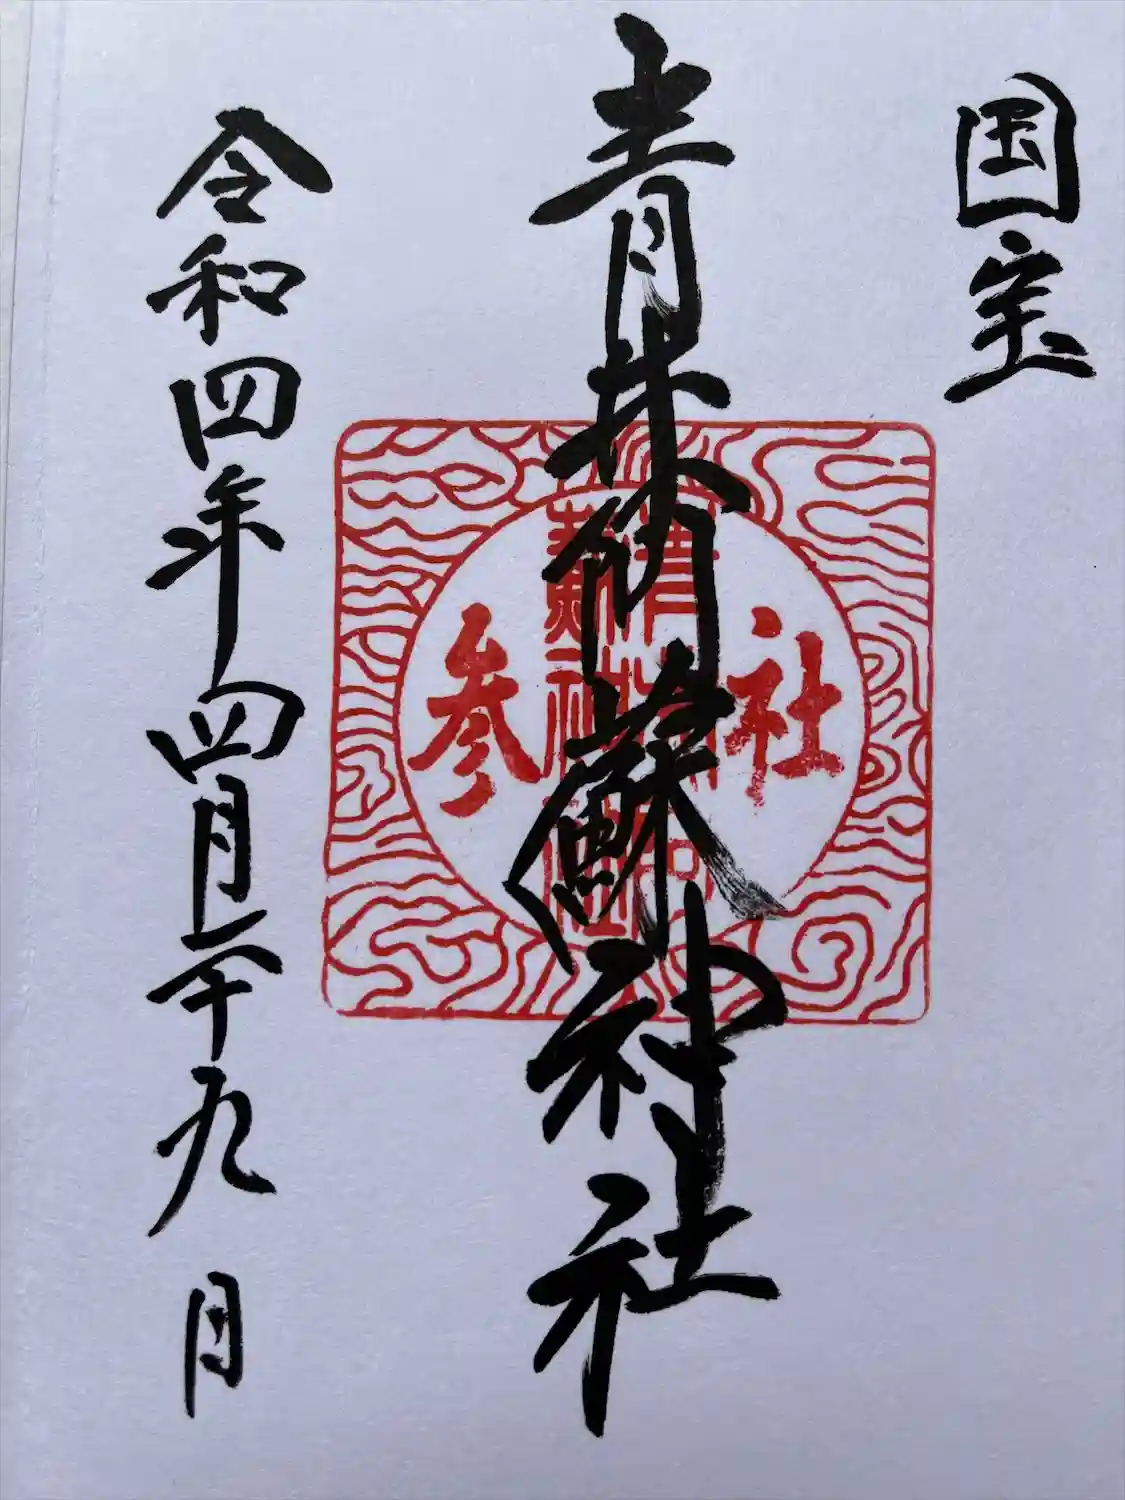 国宝
青井阿蘇神社
社参
青井阿
蘇神社
令和四年四月二十九日